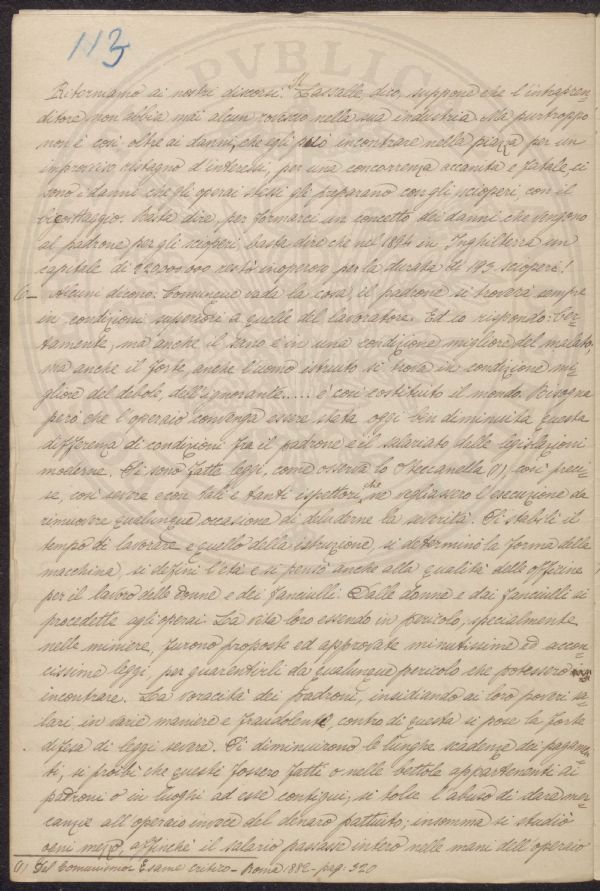 113
Ritorniamo ai nostri discorsi. Il Lassalle, dico, suppone che l'intrapren-
ditore non abbia mai alcun rovescio nella sua industria. Ma purtroppo
non è così: oltre ai danni, che egli può incontrare nella piazza per un
improvviso ristagno d'interessi, per una concorrenza accanita e fatale, ci
sono i danni che gli operai stessi gli preparano con gli scioperi, con il
boicottaggio. Basta dire, per formarci un concetto dei danni che vengono
al padrone per gli scioperi, basta dire che nel 1894 in Inghilterra un
capitale di restò inoperoso per la durata di 193 scioperi!
6 – Alcuni dicono: Comunque vada la cosa, il padrone si troverà sempre
in condizioni superiori a quelle del lavoratore. Ed io rispondo: Cer-
tamente, ma anche il sano è in una condizione migliore del malato,
ma anche il forte, anche l'uomo istruito si trova in condizione mi-
gliore del debole, dell'ignorante..... è così costituito il mondo. Bisogna
però che l'operaio convenga essere stata oggi ben diminuita questa
differenza di condizioni fra il padrone e il salariato dalle legislazioni
moderne. Si sono fatte leggi, come osserva lo Steccanella (1), così preci-
se, così severe e con tali e tanti ispettori, che ne vegliassero l'esecuzione da
rimuovere qualunque occasione di deluderne la severità. Si stabilì il
tempo di lavorare e quello della istruzione, si determinò la forma della
macchina, si definì l'età e si pensò anche alla qualità delle officine
per il lavoro delle donne e dei fanciulli. Dalle donne e dai fanciulli si
procedette agli operai. La vita loro essendo in pericolo, specialmente
nelle miniere, furono proposte ed approvate minutissime ed accon-
cissime leggi, per guarentirli da qualunque pericolo che potessero
incontrare. La voracità dei padroni, insidiando ai loro poveri sa-
lari, in varie maniere e fraudolente, contro di questa si pose la forte
difesa di leggi severe. Si diminuirono le lunghe scadenze dei pagamen-
ti, si proibì che questi fossero fatti o nelle bettole appartenenti ai
padroni o in luoghi ad esse contigui, si tolse l'abuso di dare mer-
canzie all'operaio invece del denaro pattuito; insomma si studiò
ogni mezzo, affinchè il salario passasse intero nelle mani dell'operaio
(1) Del Comunismo Esame critico – Roma 1882 – pag. 320